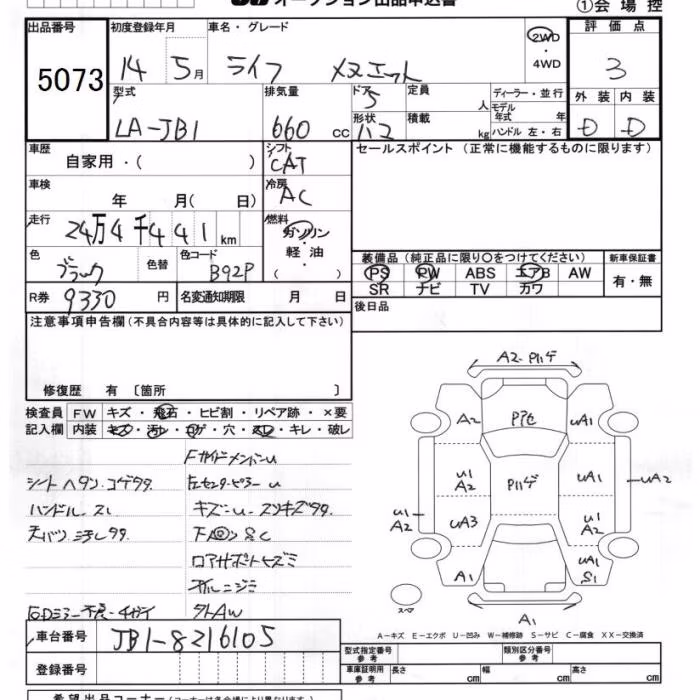 オークション出品申込書
①会場控
出品番号 初度登録年月 車名・グレード 評価点
5073 14 5月 ライフ メヌエット 2WD・4WD 3
型式 排気量 ドア 定員 ディーラー・並行 外装 内装
LA-JB1 660 cc 5 人 モデル年式 年 D D
形状 ハコ 積載 kg ハンドル 左・右
車歴 自家用・( ) シフト CAT セールスポイント (正常に機能するものに限ります)
車検 年 月( 日) 冷房 AC
走行 24万4千441km 燃料 ガソリン・軽油・( )
色 ブラック 色替 色コード B92P
装備品 (純正品に限り○をつけてください) 新車保証書
PS PW ABS エアB AW 有・無
SR ナビ TV カワ
R券 9330円 名変通知期限 月 日 後日品
注意事項申告欄(不具合内容等は具体的に記入して下さい)
修復歴 有 〔箇所 〕
検査員 FW キズ・飛石・ヒビ割・リペア跡・×要
記入欄 内装 キズ・汚レ・コゲ・穴・スレ・キレ・破レ
FサイドメンバーU
シートヘタリ.コゲタタ.
ハンドル.スレ
ロアサポートヒズミ
タトAW
A2-Pハゲ
A2 Pアセ uA1
u1 A2 Pハゲ uA1 uA2
u1 A2 uA3 u1 A2
A1 uA1 S1
スペア A1
A−キズ E−エクボ U−凹み W−補修跡 S−サビ C−腐食 XX−交換済
車台番号 JB1-8216105
型式指定番号 参考 類別区分番号 参考
登録番号 車庫証明用 参考 長さ cm 幅 cm 高さ cm
希望出品コーナー(コーナーは各会場により異なります)